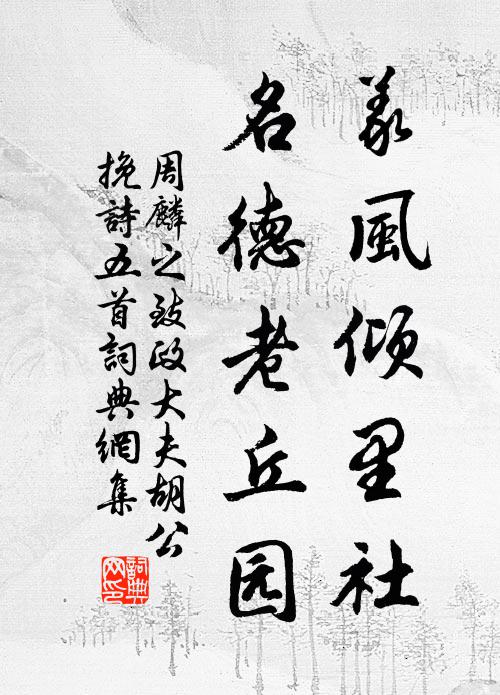 義風傾里社
名德老丘园
周麟之致政大夫胡公
挽詩五首詞典網集
詞典网印